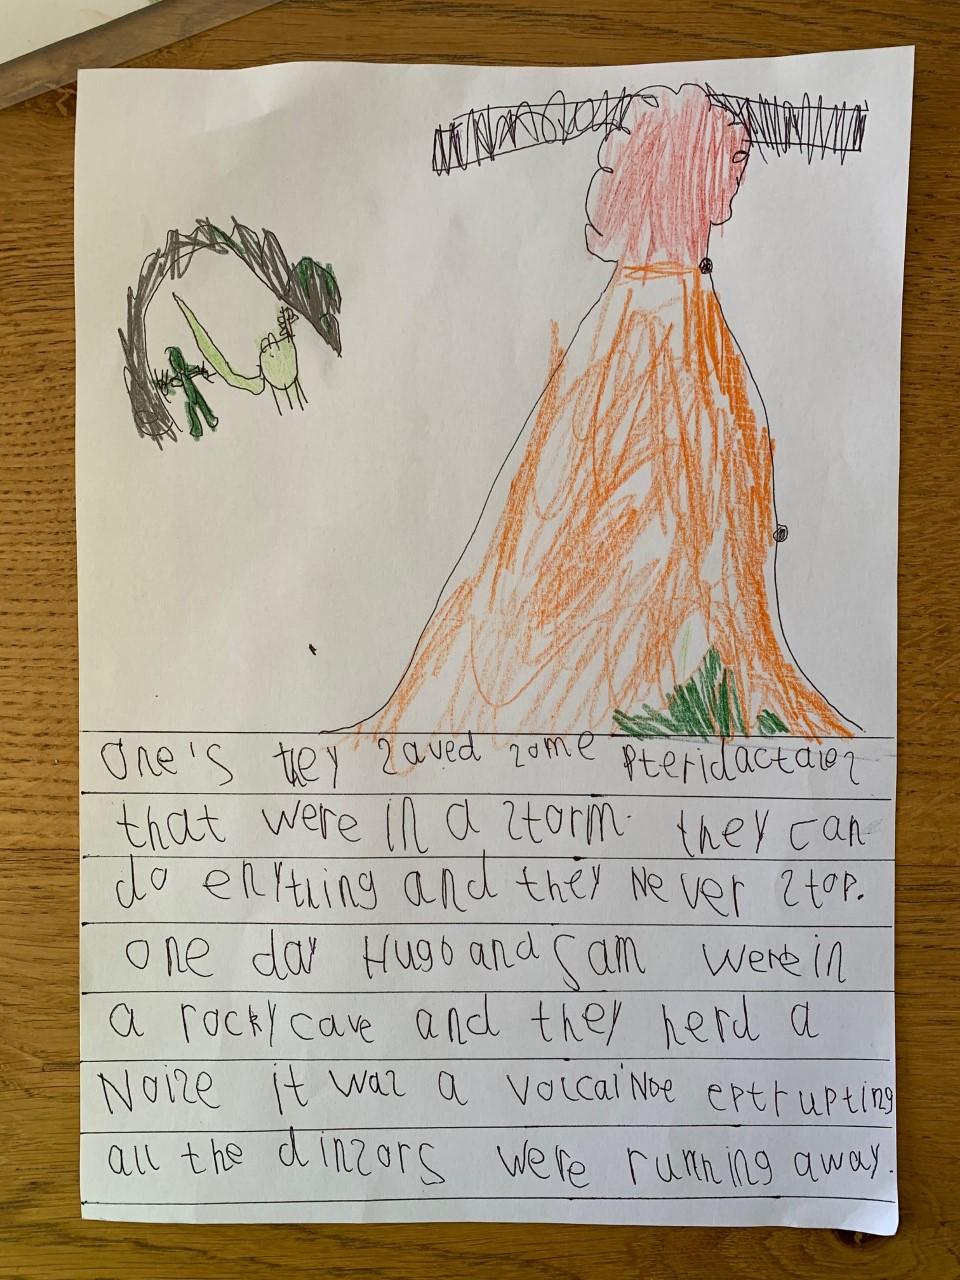 one's they saved some Pteridactales
that were in a storm. they can
do enything and they never stop.
one day Hugo and Sam were in
a rocky cave and they herd a
Noize it was a volccainoe eptrupting
all the dinsors were running away.